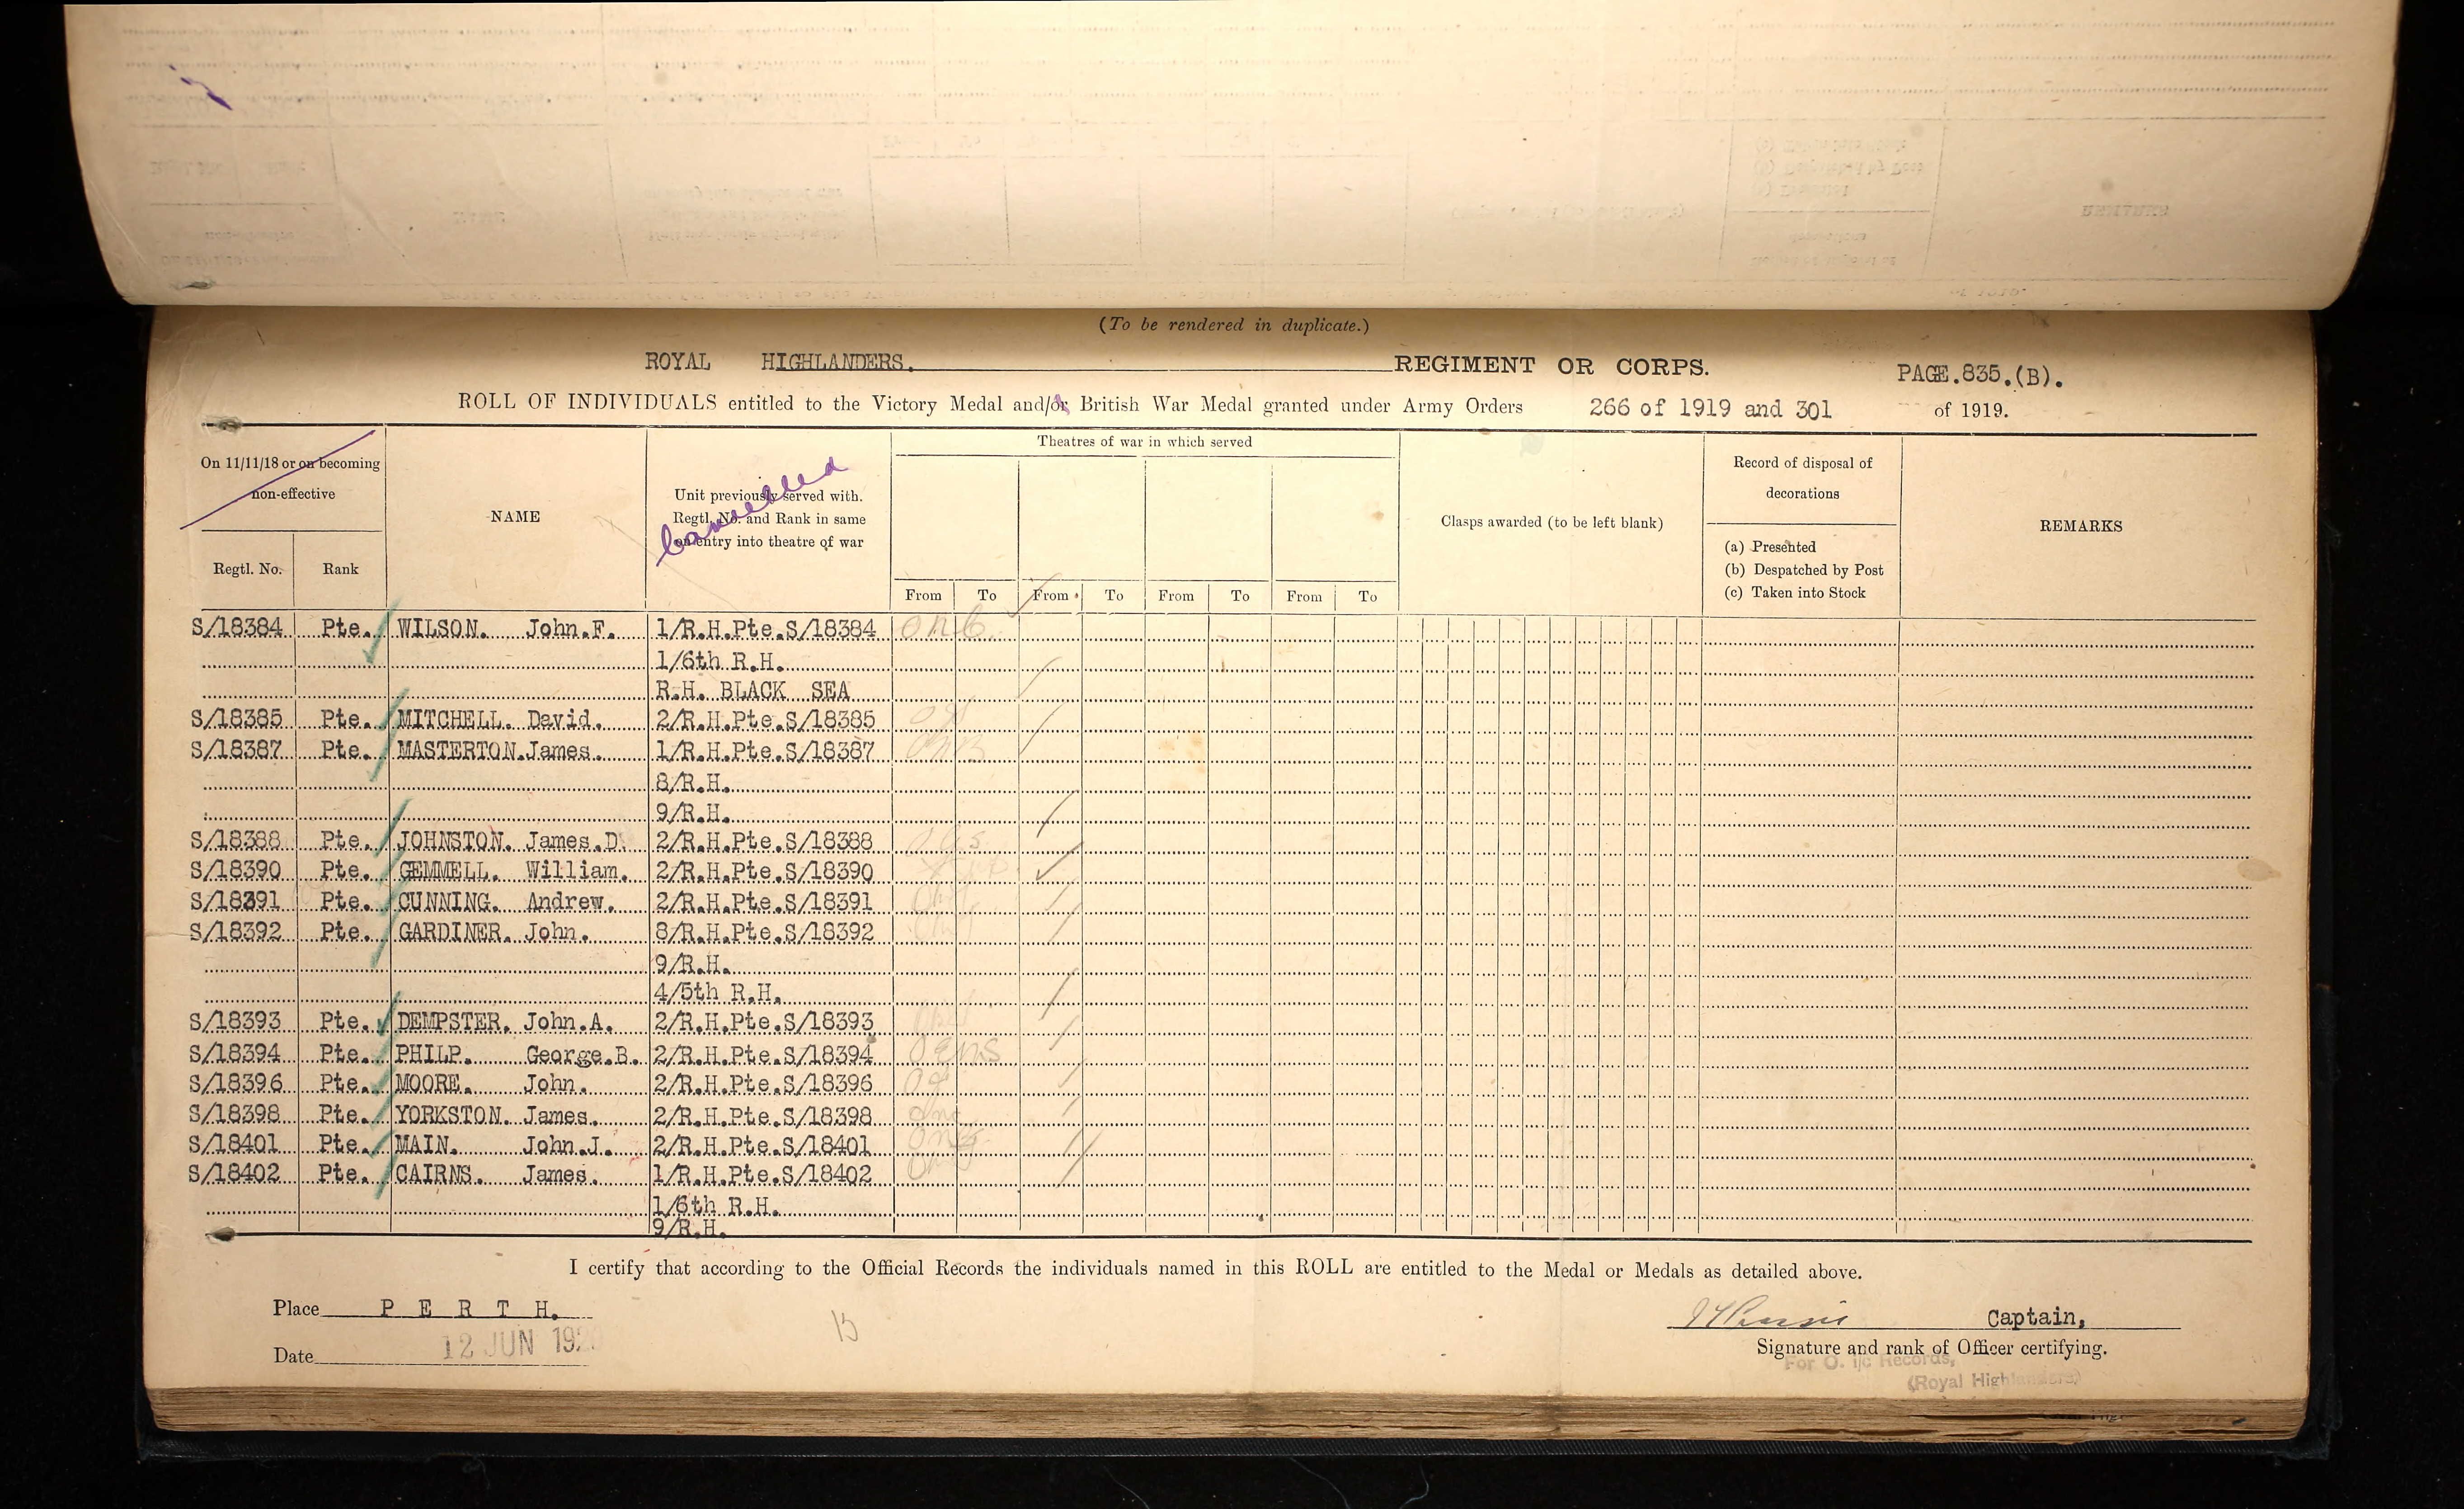 (To be rendered in duplicate.)
ROYAL HIGHLANDERS. REGIMENT OR CORPS. PAGE.835.(B).
ROLL OF INDIVIDUALS entitled to the Victory Medal and/or British War Medal granted under Army Orders 266 of 1919 and 301 of 1919.
Theatres of war in which served
On 11/11/18 or on becoming
non-effective
Regtl. No.
Rank
NAME
Unit previously served with.
Regtl. No. and Rank in same
on entry into theatre of war
Cancelled
From To From To From To From To
Clasps awarded (to be left blank)
Record of disposal of
decorations
(a) Presented
(b) Despatched by Post
(c) Taken into Stock
REMARKS
S/18384 Pte. WILSON. John.F. 1/R.H.Pte.S/18384
1/6th R.H.
R.H. BLACK SEA
S/18385 Pte. MITCHELL. David. 2/R.H.Pte.S/18385
S/18387 Pte. MASTERTON.James. 1/R.H.Pte.S/18387
8/R.H.
9/R.H.
S/18388 Pte. JOHNSTON. James.D. 2/R.H.Pte.S/18388
S/18390 Pte. GEMMELL. William. 2/R.H.Pte.S/18390
S/18391 Pte. CUNNING. Andrew. 2/R.H.Pte.S/18391
S/18392 Pte. GARDINER. John. 8/R.H.Pte.S/18392
9/R.H.
4/5th R.H.
S/18393 Pte. DEMPSTER. John.A. 2/R.H.Pte.S/18393
S/18394 Pte. PHILP. George.B. 2/R.H.Pte.S/18394
S/18396 Pte. MOORE. John. 2/R.H.Pte.S/18396
S/18398 Pte. YORKSTON. James. 2/R.H.Pte.S/18398
S/18401 Pte. MAIN. John.J. 2/R.H.Pte.S/18401
S/18402 Pte. CAIRNS. James. 1/R.H.Pte.S/18402
1/6th R.H.
9/R.H.
I certify that according to the Official Records the individuals named in this ROLL are entitled to the Medal or Medals as detailed above.
Place P E R T H.
Captain,
Date 12 JUN 1920
Signature and rank of Officer certifying.
For O. i/c Records,
(Royal Highlanders)